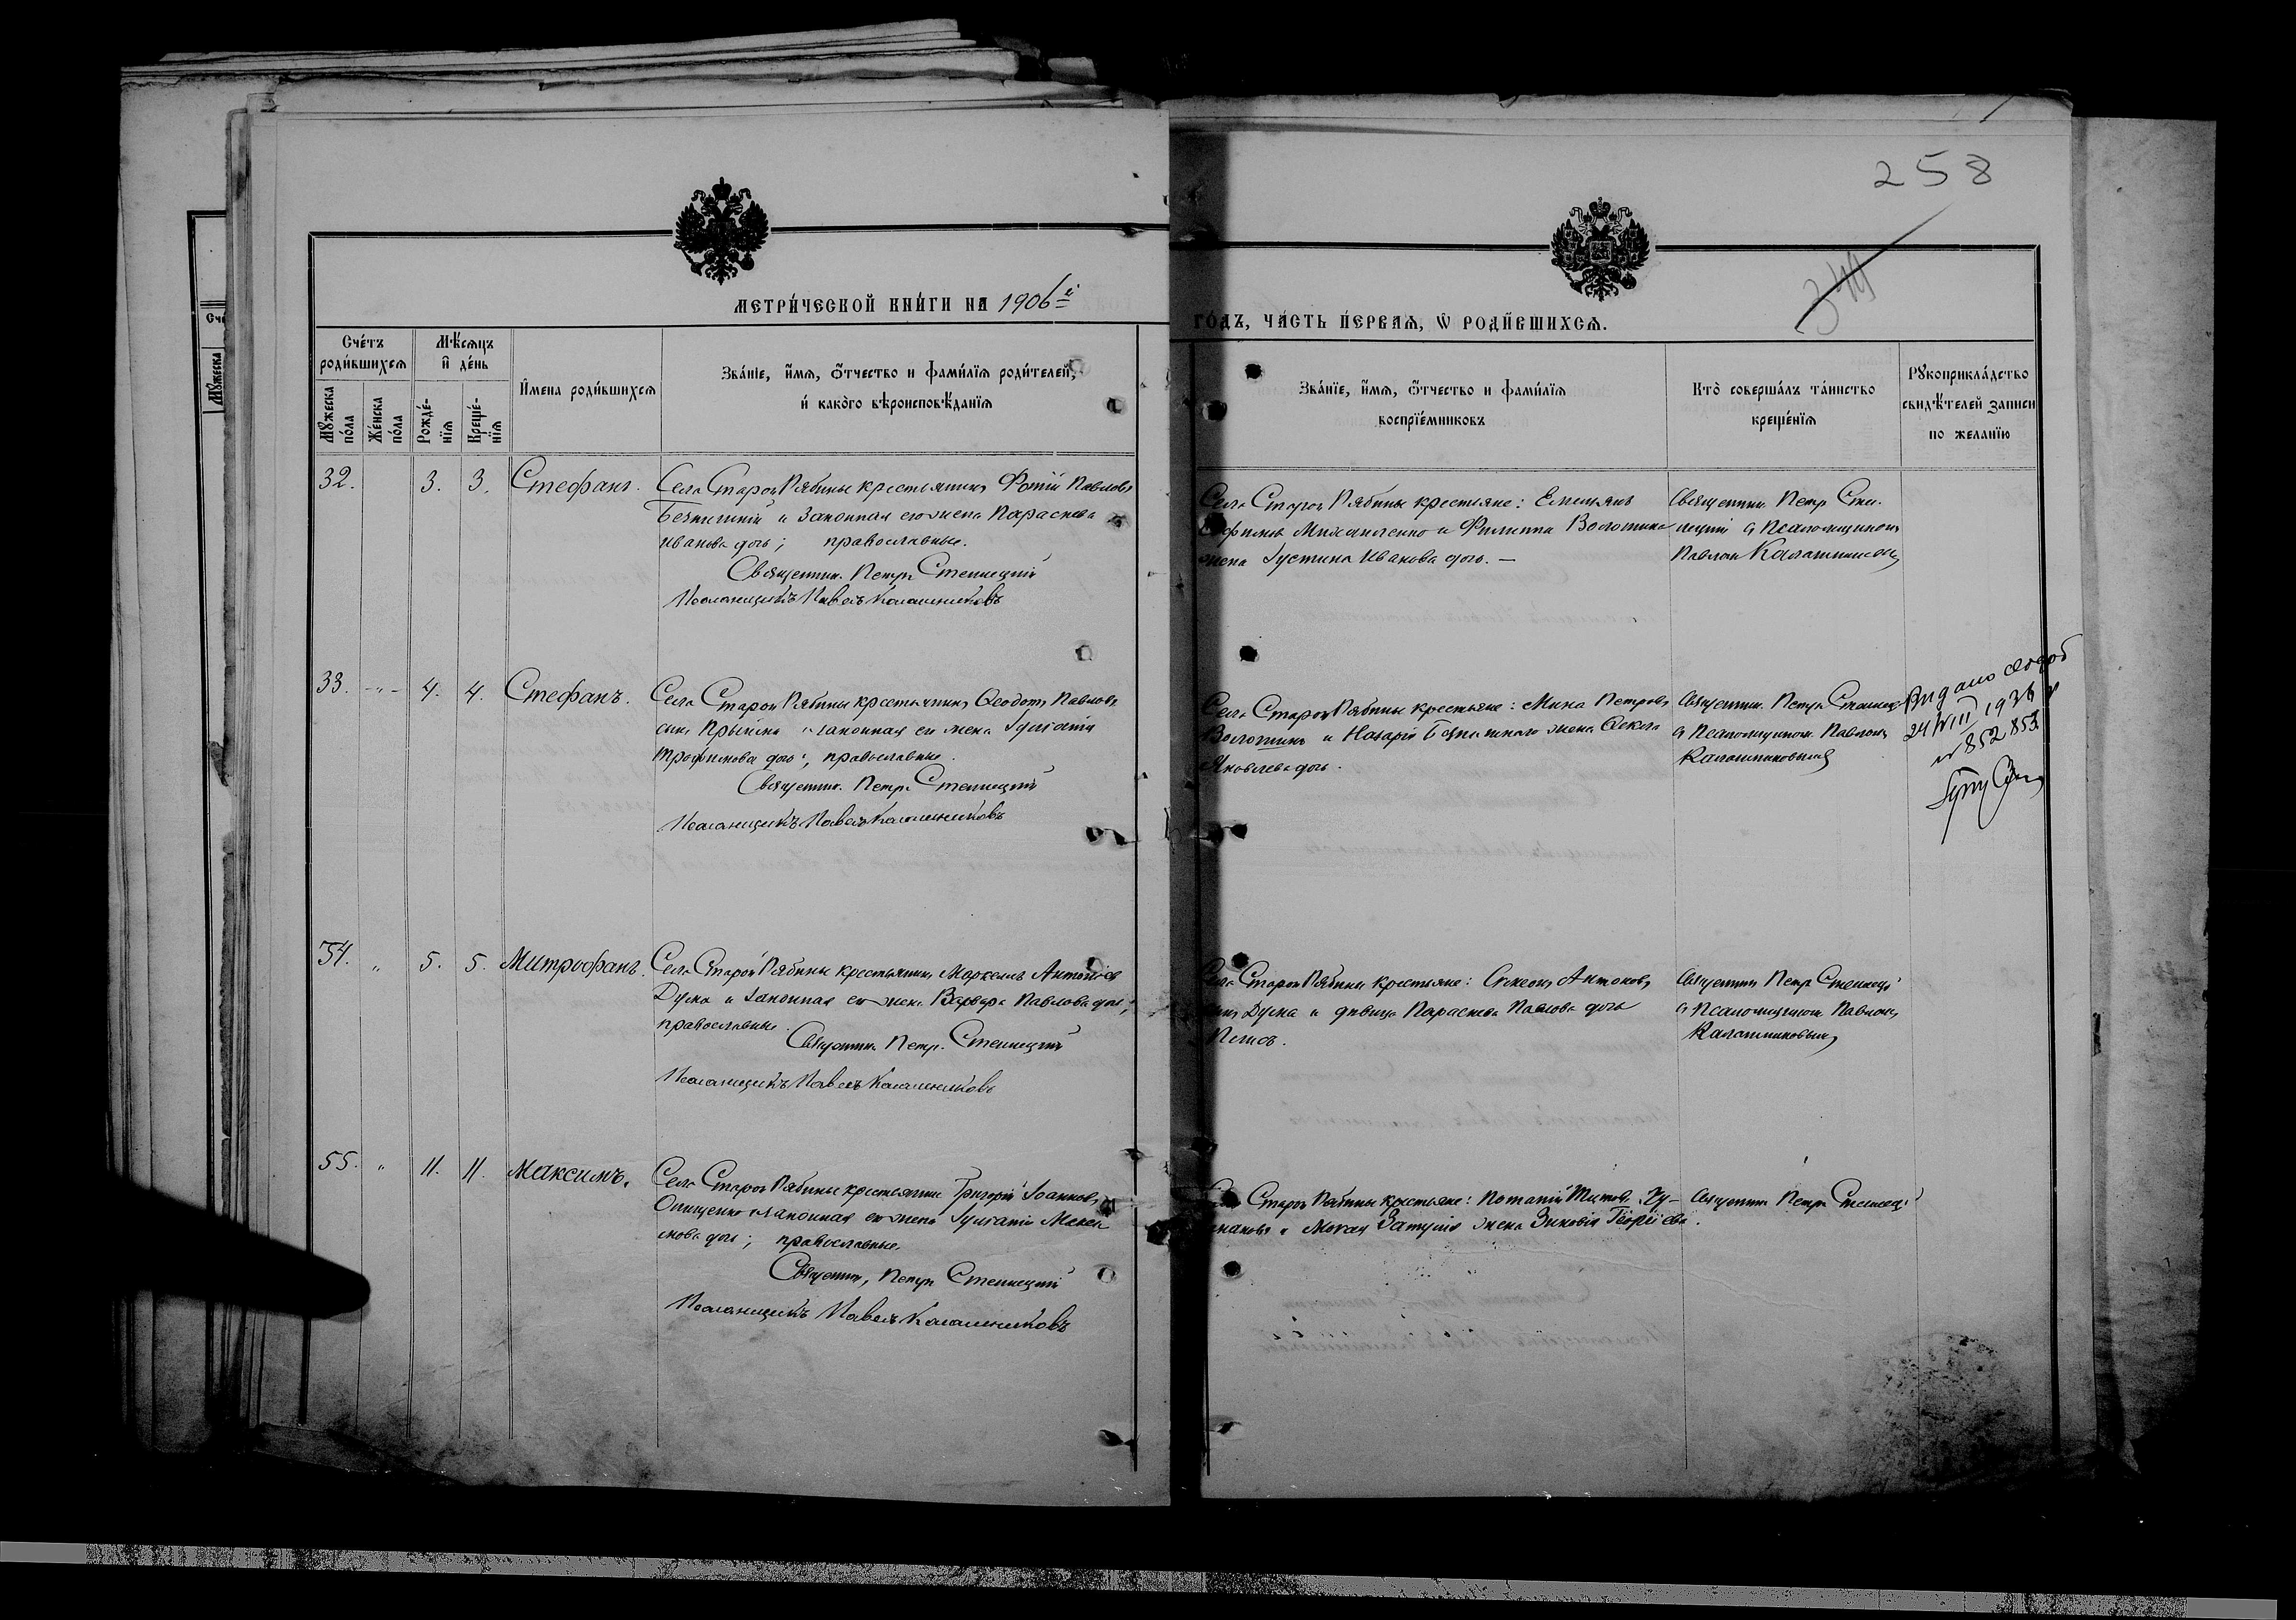 258
344
МЕТРИ́ЧЕСКОЙ КНИ́ГИ НА 1906й
ГО́ДЪ, ЧА́СТЬ ПЕ́РВАѦ, Ѡ РОДИ́ВШИХСѦ.
Сче́тъ роди́вшихсѧ
Мѣ́сѧцъ и҆ де́нь
Мꙋ́жеска по́ла
Же́нска по́ла
Рожде́-нїѧ
Креще́-нїѧ
И҆мена роди́вшихсѧ
Зва́нїе, и҆́мѧ, ѻ҆́тчество и фами́лїѧ роди́телей,
и҆ како́го вѣроисповѣ́данїѧ
Зва́нїе, и҆́мѧ, ѻ҆́тчество и фами́лїѧ
воспрїе́мниковъ
Кто̀ соверша́лъ та́инство
креще́нїѧ
Рꙋкоприкла́дство
свидѣ́телей записи
по желанїю
32. 3. 3. Стефанъ.
Села Старой Рябины крестьянинъ Фотій Павловъ
и законная его жена Параскева
Иванова дочь; православные.
Священник Петръ Стеллецкій
Псаломщикъ Павелъ Калашниковъ
Села Старой Рябины крестьяне: Емельянъ
Михайленко и Филиппа Волошина
жена Іустина Иванова дочь. —
Священник Петр Стел-
лецкій съ Псаломщикомъ
Павлом Калашников
33. -"- 4. 4. Стефанъ.
Села Старой Рябины крестьянинъ Ѳеодотъ Павловъ
сынъ и законная его жена Іуліанія
Трофимова дочь; православные.
Священник Петръ Стеллецкій
Псаломщикъ Павелъ Калашниковъ
Села Старой Рябины крестьяне: Мина Петровъ
Волошинъ и Назарія жена Ѳекла
Яковлева дочь.
Священник Петръ Стеллец
съ Псаломщиком Павломъ
Калашниковымъ
Видано свідоц
24/VIII 1938 р
№ 852853
54. " 5. 5. Митрофанъ.
Села Старой Рябины крестьянинъ Маркеллъ Антоніев
Дума и законная его жена Варвара Павлова дочь;
православные.
Священник Петр. Стеллецкій
Псаломщикъ Павелъ Калашниковъ
Села Старой Рябины крестьяне: Симеонъ Антоновъ
Дума и дѣвица Параскева Павлова дочь
Священник Петр Стеллецкі
съ Псаломщиком Павломъ
Калашниковымъ
55. " 11. 11. Максимъ.
Села Старой Рябины крестьянин Григорій Іоанновъ
Онищенко и законная его жена Іуліанія Макси
мова дочь; православные.
Священник, Петръ Стеллецкій
Псаломщикъ Павелъ Калашниковъ
Старой Рябины крестьяне: Потапій Титовъ
и жена Зиновія Георгіева.
Священник Петръ Стеллецкі